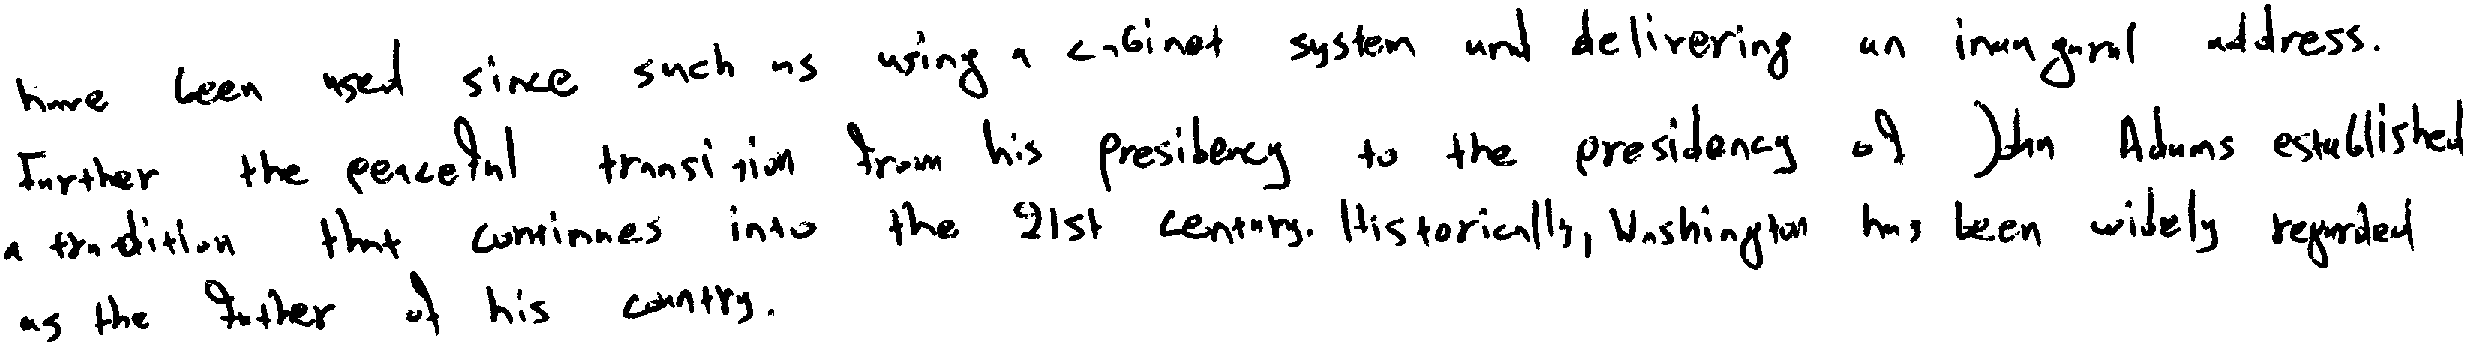 have been used since such as using a cabinet system and delivering an inaugural address.
Further the peaceful transition from his presidency to the presidency of John Adams established
a tradition that continues into the 21st century. Historically, Washington has been widely regarded
as the father of his country.